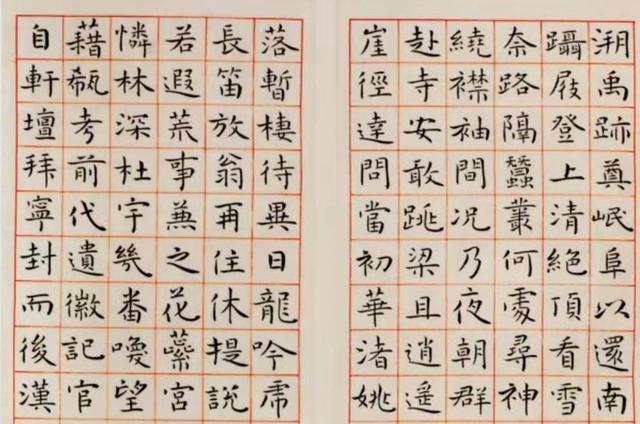 溯禹跡奠岷阜以還南
躡屐登上清絕頂看雪
奈路隔蠶叢何處尋神
繞襟袖間況乃夜朝群
赴寺安敢跳梁且逍遙
崖徑達問當初華渚姚
落暫棲待異日龍吟虎
長笛放翁再住休提說
若遐荒事兼之花蘂宮
憐林深杜宇幾番喚望
藉瓻考前代遺徽記官
自軒壇拜寧封而後漢